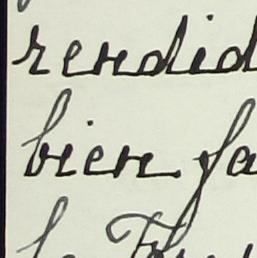 rendid
bien fa